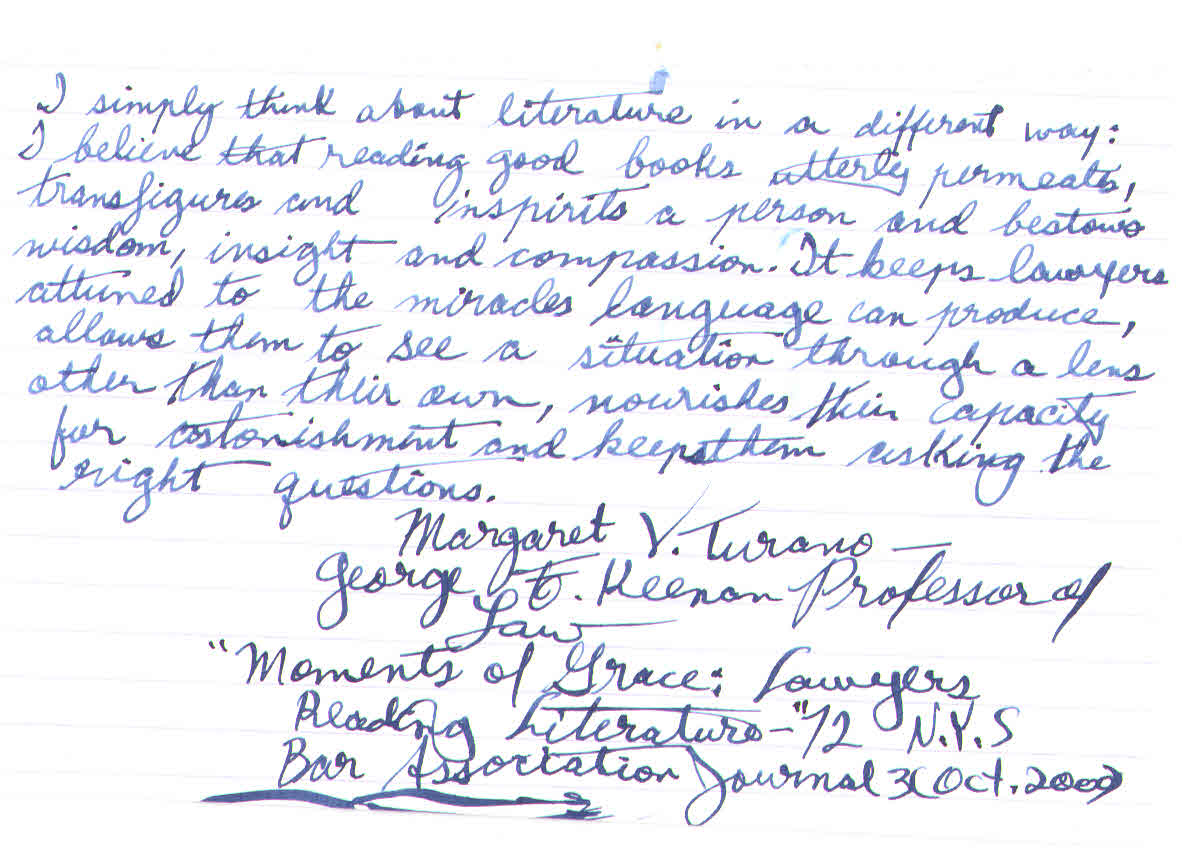 I simply think about literature in a different way:
I believe that reading good books utterly permeates,
transfigures and inspirits a person and bestows
wisdom, insight and compassion. It keeps lawyers
attuned to the miracles language can produce,
allows them to see a situation through a lens
other than their own, nourishes their capacity
for astonishment and keeps them asking the
right questions.
Margaret V. Turano —
George F. Keenan Professor of
Law
"Moments of Grace: Lawyers
Reading Literature-" 72 N.Y.S
Bar Association Journal 3(Oct. 2000)